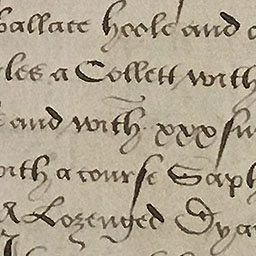 Ballace hoole and
les a Collett with
and with xxx
with a course Saph
A Lozenged Dya